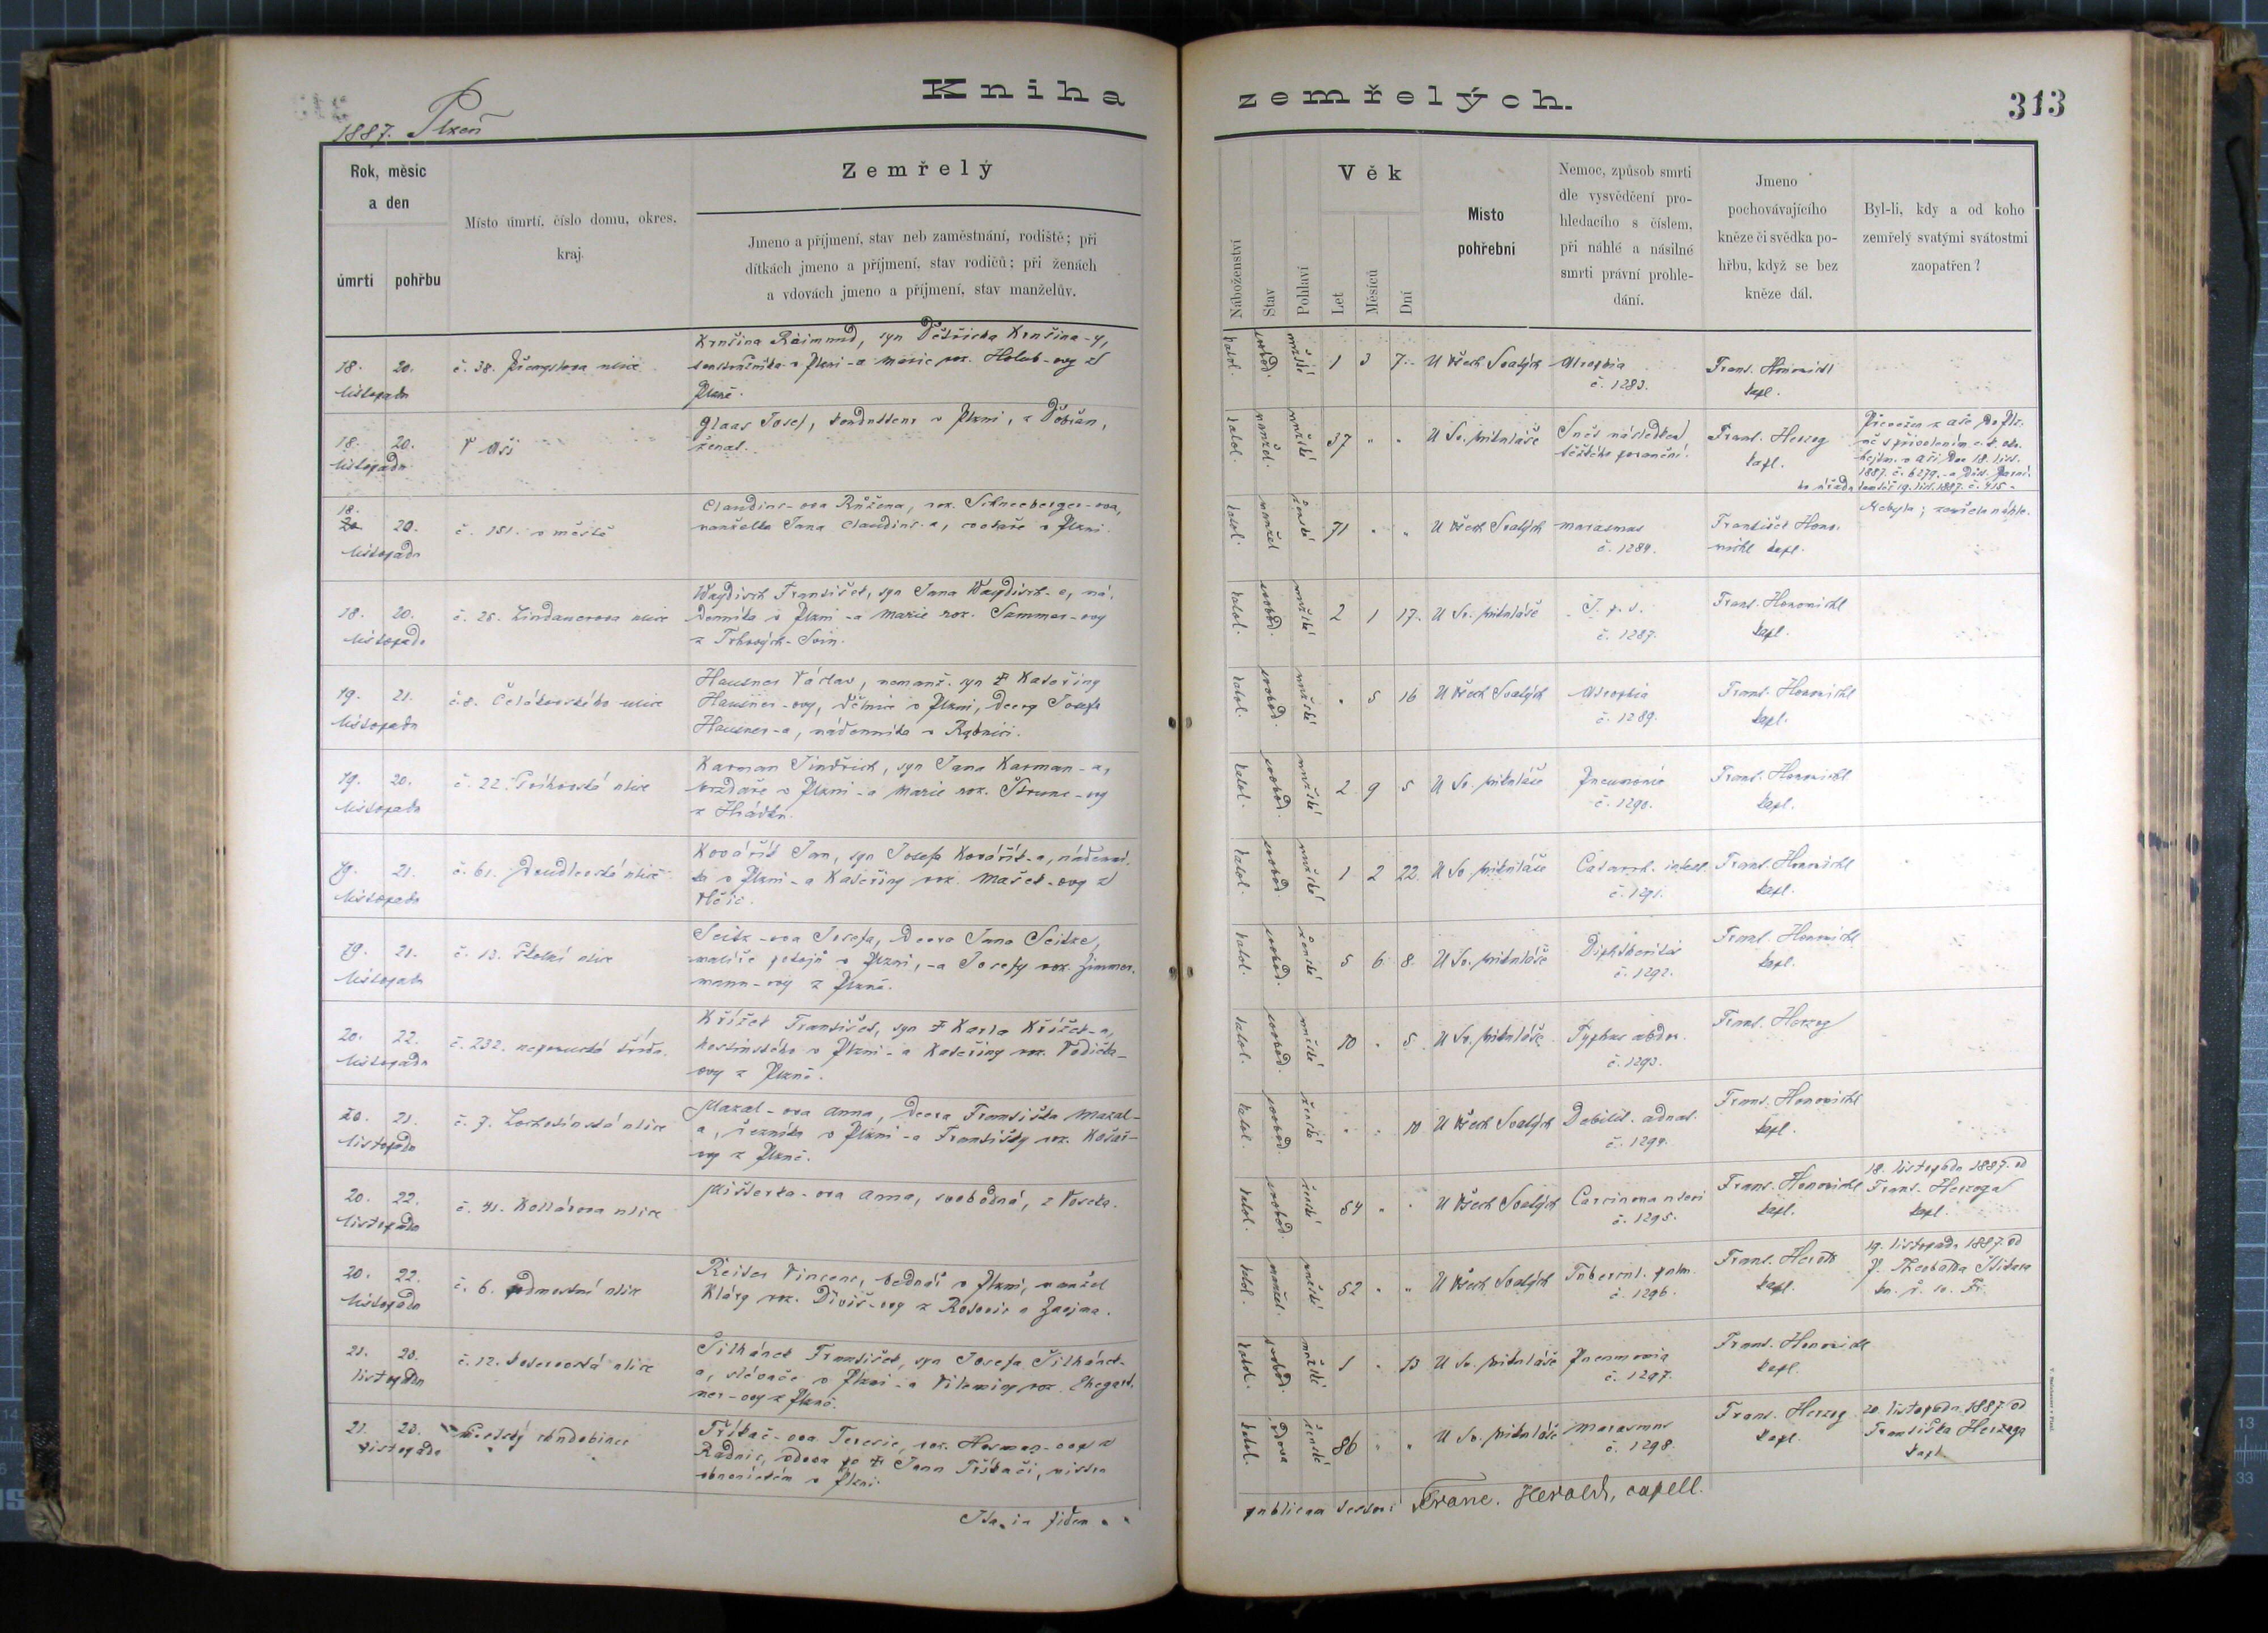 Kniha
1887. Plzeň
Rok, měsíc
a den
úmrtí
pohřbu
Místo úmrtí, číslo domu, okres,
kraj.
Zemřelý
Jmeno a příjmení, stav neb zaměstnání, rodiště; při
dítkách jmeno a příjmení, stav rodičů; při ženách
a vdovách jmeno a příjmení, stav manželův.
18. 20.
listopadu
č. 38. Přemyslova ulice
Krnčina Raimund, syn Dětřicha Krnčina-y,
v Plzni - a Marie roz. Holub-ovy z
Plzně.
18. 20.
listopadu
V Aši
Glaas Josef, konduktenr v Plzni, z Dobřan,
ženat.
18.
20.
listopadu
č. 151. v městě
Claudius-ova Růžena, roz. Schneeberger-ova,
manželka Jana Claudius-a, v Plzni.
18. 20.
listopadu
č. 28. Lindauerova ulice
Waydisch František, syn Jana Waydisch-e, ná-
denníka v Plzni - a Marie roz. Sammer-ovy
z Trhových-Svin.
19. 21.
listopadu
č. 8. Čelákovského ulice
Hausner Václav, nemanž. syn Kateřiny
Hausner-ovy, dělnice v Plzni, dcery Josefa
Hausner-a, nádenníka v Rybnici.
19. 20.
listopadu
č. 22. ulice
Karman Jindřich, syn Jana Karman-a,
brzdaře v Plzni - a Marie roz. Strunc-ovy
z Hrádku.
19. 21.
listopadu
č. 61. ulice
Kovářík Jan, syn Josefa Kovářík-a, nádenní-
ka v Plzni - a Kateřiny roz. Mašek-ovy z
Vlčic.
19. 21.
listopadu
č. 13. Školní ulice
Seitz-ova Josefa, dcera Jana Seitze,
malíře pokojů v Plzni, - a Josefy roz. Zimmer-
mann-ovy z Plzně.
20. 22.
listopadu
č. 232. nepomucká třída.
Křížek František, syn Karla Křížek-a,
hostinského v Plzni - a Kateřiny roz. Vodička-
ovy z Plzně.
20. 21.
listopadu
č. 7. Lochotínská ulice
Mazal-ova Anna, dcera Františka Mazal-
a, řezníka v Plzni - a Františky roz. Košař-
ovy z Plzně.
20. 22.
listopadu
č. 41. Kollárova ulice
Mišterka-ova Anna, svobodná, z
20. 22.
listopadu
č. 6. podmostní ulice
Reiter Vincenc, bednář v Plzni, manžel
Kláry roz. Diviš-ovy z Rosovic u Znojma.
21. 23.
listopadu
č. 12. ulice
Šilhánek František, syn Josefa Šilhánek-
a, slévače v Plzni - a Vilemíny roz. Ehegart-
ner-ovy z Plzně.
21. 23.
listopadu
Městský chudobinec
Tříkač-ova Terezie, roz. Herman-ova z
Radnic, vdova po Janu Tříkači, mistru
obuvnickém v Plzni.
zemřelých.
313
Náboženství
Stav
Pohlaví
Věk
Let
Měsíců
Dní
Místo
pohřební
Nemoc, způsob smrti
dle vysvědčení pro-
hledacího s číslem,
při náhlé a násilné
smrti právní prohle-
dání.
Jmeno
pochovávajícího
kněze či svědka po-
hřbu, když se bez
kněze dál.
Byl-li, kdy a od koho
zemřelý svatými svátostmi
zaopatřen?
katol. svobod. mužské 1 3 7 U Všech Svatých Atrophia
č. 1283.
Frant. Honomichl
kapl.
katol. manžel. mužské 37 " " U Sv. Mikuláše Snět následkem
těžkého poranění.
Frant. Herzog
kapl.
Převežen z Aše do Plz-
ně s přivolením c. k. okr.
hejtm. v Aši dne 18. list.
1887. č. 6279. - a Děk. farní-
ho úřadu tamtéž 19. list. 1887. č. 415. -
katol. manžel ženské 71 " " U Všech Svatých marasmus
č. 1284.
František Hono-
michl kapl.
Nebyla; zemřela náhle.
katol. svobod. mužské 2 1 17. U Sv. Mikuláše
č. 1287.
Frant. Honomichl
kapl.
katol. svobod. mužské " 5 16 U Všech Svatých Atrophia
č. 1289.
Frant. Honomichl
kapl.
katol. svobod. mužské 2 9 5 U Sv. Mikuláše Pneumonie
č. 1290.
Frant. Honomichl
kapl.
katol. svobod. mužské 1 2 22. U Sv. Mikuláše Catarrh. intest.
č. 1291.
Frant. Honomichl
kapl.
katol. svobod. ženské 5 6 8. U Sv. Mikuláše Diphtheritis
č. 1292.
Frant. Honomichl
kapl.
katol. svobod. mužské 10 " 5. U Sv. Mikuláše Typhus abdom.
č. 1293.
Frant. Herzog
katol. svobod. ženské " " 10 U Všech Svatých Debilit. adnat.
č. 1294.
Frant. Honomichl
kapl.
katol. svobod. ženské 54 " " U Všech Svatých Carcinoma uteri
č. 1295.
Frant. Honomichl
kapl.
18. listopadu 1887. od
Frant. Herzoga
kapl.
katol. manžel. mužské 52 " " U Všech Svatých Tubercul. pulm.
č. 1296.
Frant. Herold
kapl.
19. listopadu 1887. od
P. Theobalda
katol. svobod. mužské 1 " 13 U Sv. Mikuláše Pneumonia
č. 1297.
Frant. Honomichl
kapl.
katol. vdova ženské 86 " " U Sv. Mikuláše Marasmus
č. 1298.
Frant. Herzog
kapl.
20. listopadu 1887 od
Františka Herzoga
kapl.
Franc. Herold, capell.